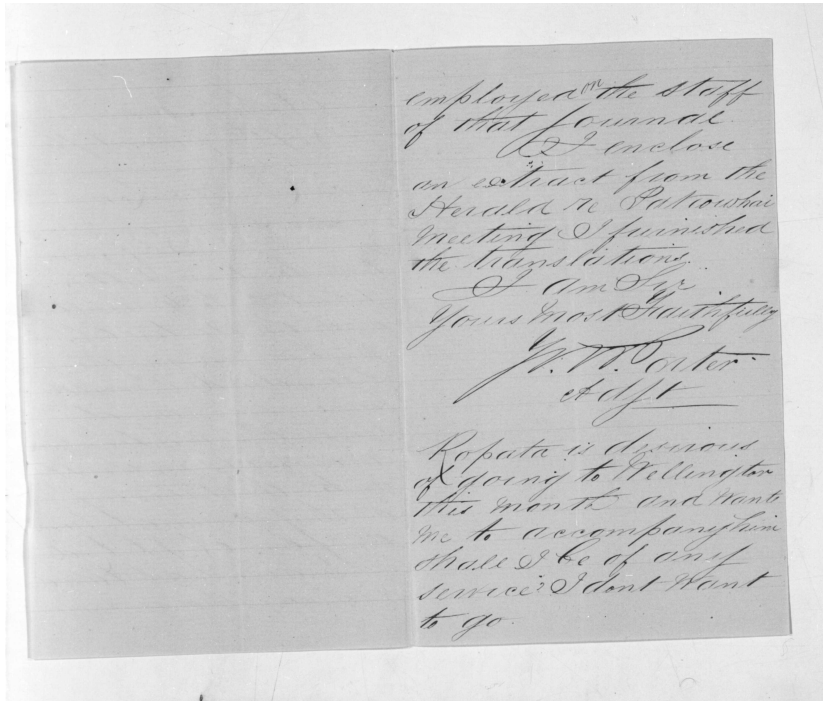 employed on the staff
of that Journal.
I enclose
an extract from the
Herald re Patutahi
Meeting I furnished
the translations.
I am Sir
Yours most Faithfully
T. W. Porter
Adjt
Ropata is desirous
of going to Wellington
this month and wants
me to accompany him
shall I be of any
service? I dont want
to go.